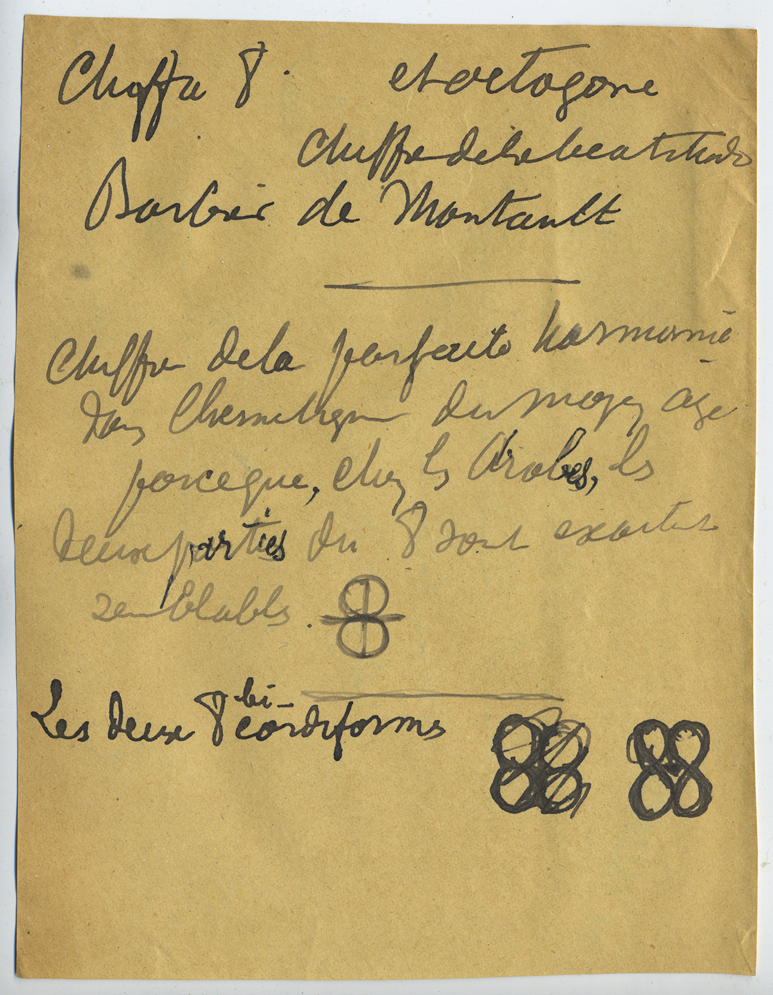 Chiffre 8. et octogone
chiffre de la beatitude
Barbier de Montault
Chiffre de la parfaite harmonie
Dans l'hermetique du moyen âge
parceque, chez les Arabes, les
deux parties du 8 sont exactes
semblables. 8
Les deux 8 bi-cordiformes 88 88